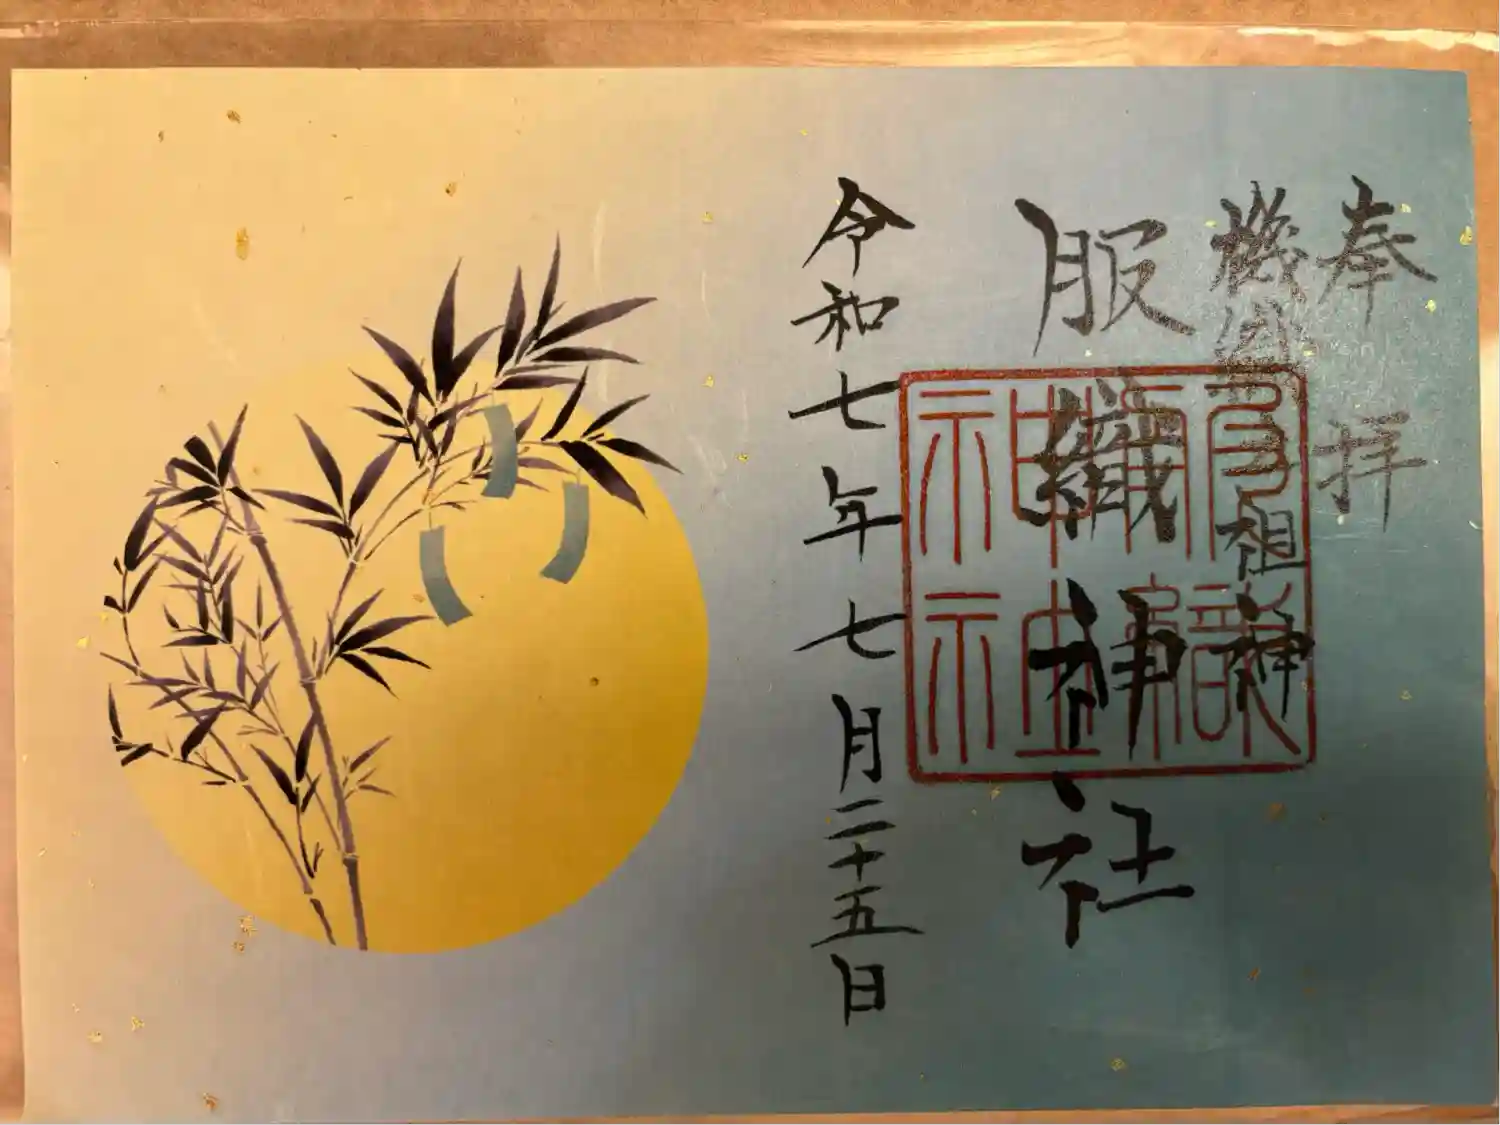 奉拝
機
祖神
服織神社
服織神社
令和七年七月二十五日